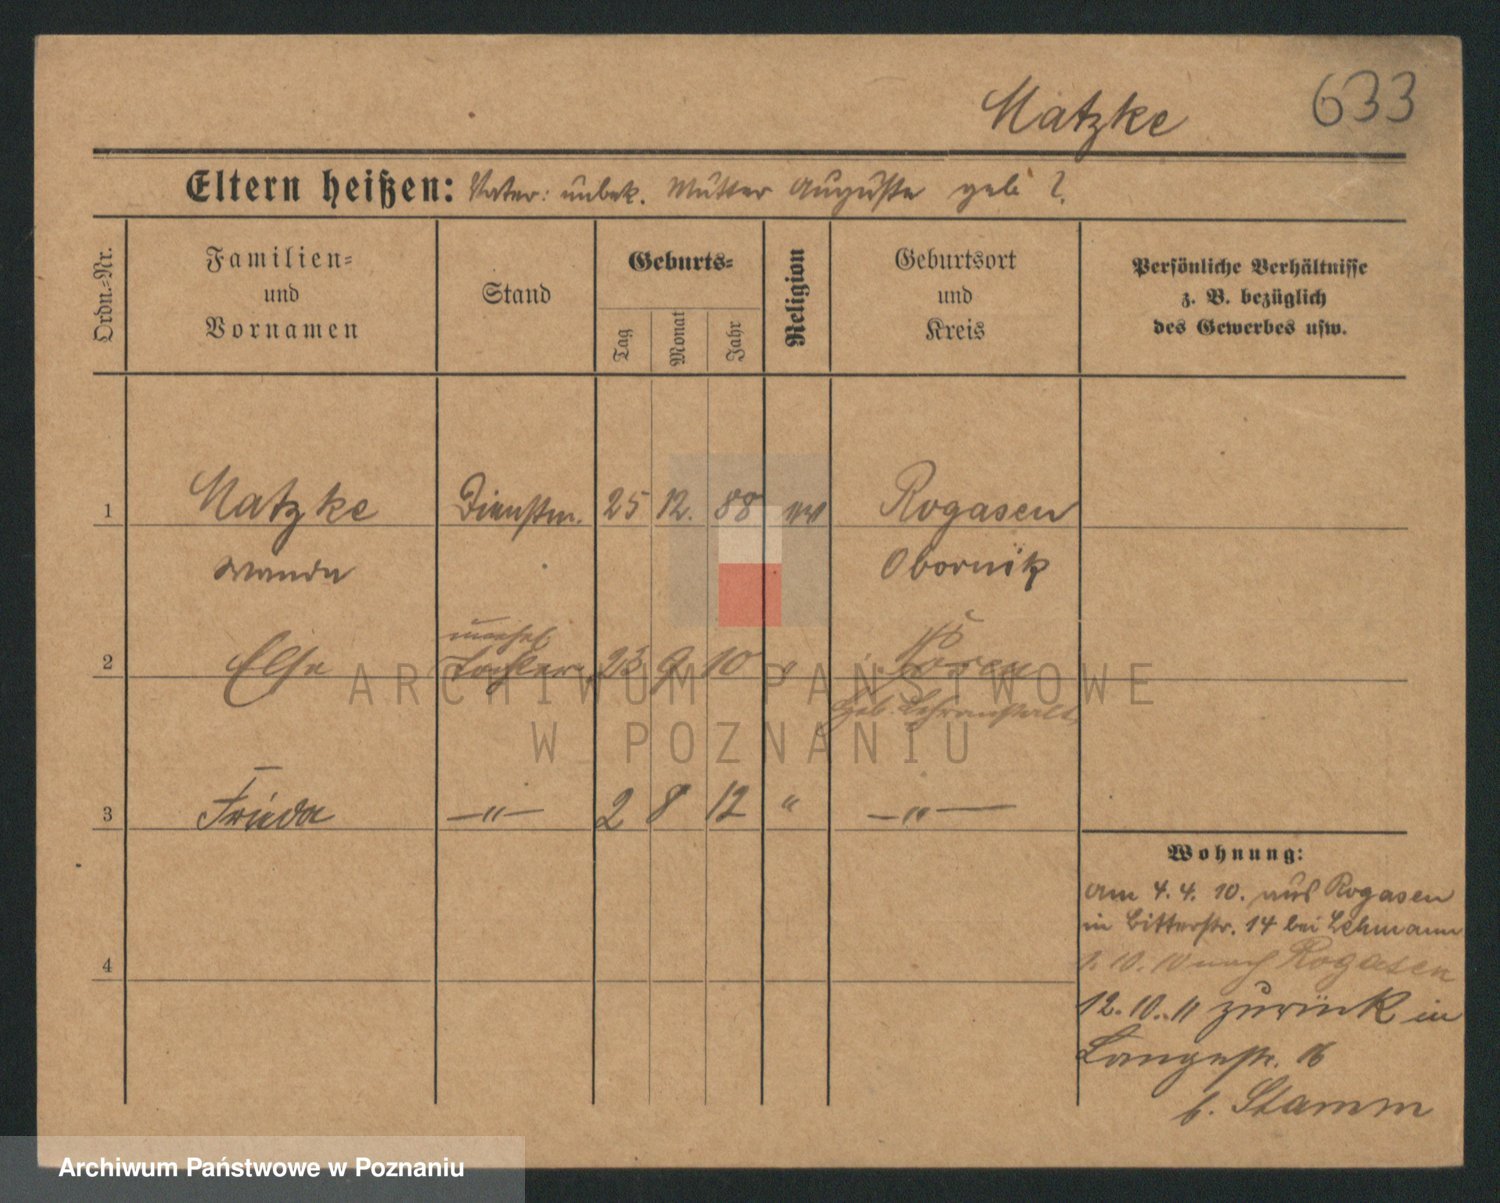 Matzke
633
Eltern heißen: Vater: unbek. Mutter Auguste geb ?.
Ordn.-Nr.
Familien-
und
Vornamen
Stand
Geburts-
Tag
Monat
Jahr
Religion
Geburtsort
und
Kreis
Persönliche Verhältnisse
z. B. bezüglich
des Gewerbes usw.
1 Matzke Dienstm. 25 12. 88 ev Rogasen
Wanda Obornik
unehel
2 Else Tochter 23 9 10 " Posen
Heb. Lehranstalt
3 Frieda —"— 2 8 12 " —"—
Wohnung:
am 4. 4. 10. aus Rogasen
in Bitterstr. 14 bei Lehmann
1. 10. 10 nach Rogasen
4
12. 10. 11 zurück in
Langestr. 16
b. Stamm
ARCHIWUM PAŃSTWOWE
W POZNANIU
Archiwum Państwowe w Poznaniu